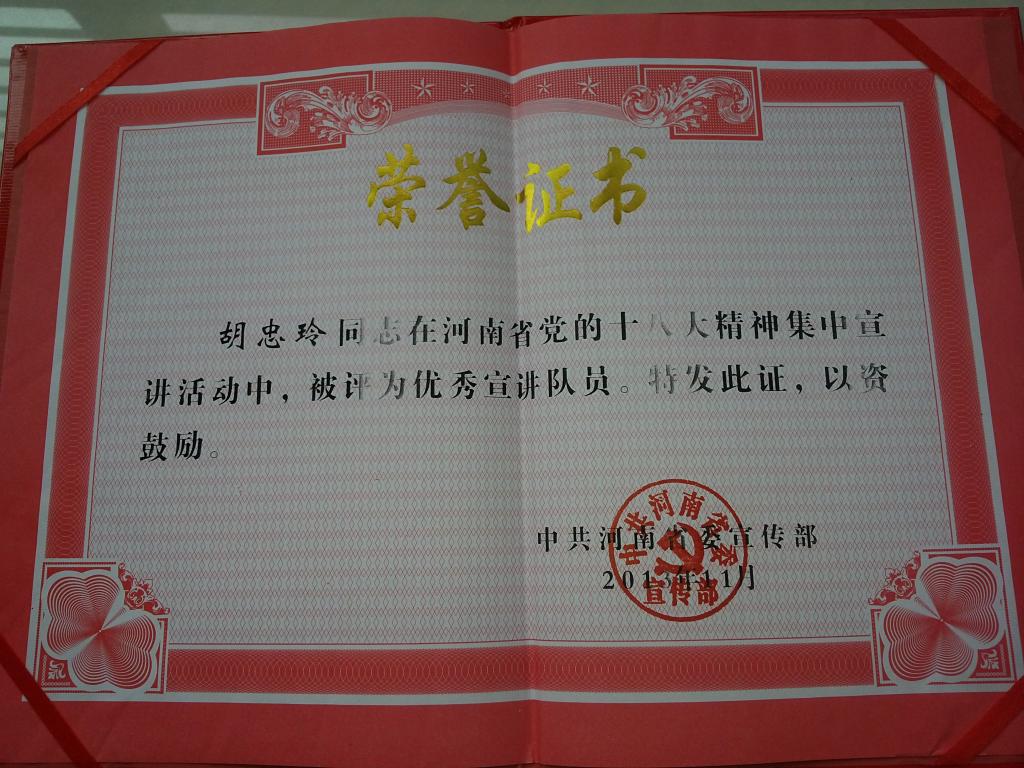 荣誉证书
胡忠玲同志在河南省党的十八大精神集中宣
讲活动中，被评为优秀宣讲队员。特发此证，以资
鼓励。
中共河南省委宣传部
2013年11月
中共河南省委
宣传部